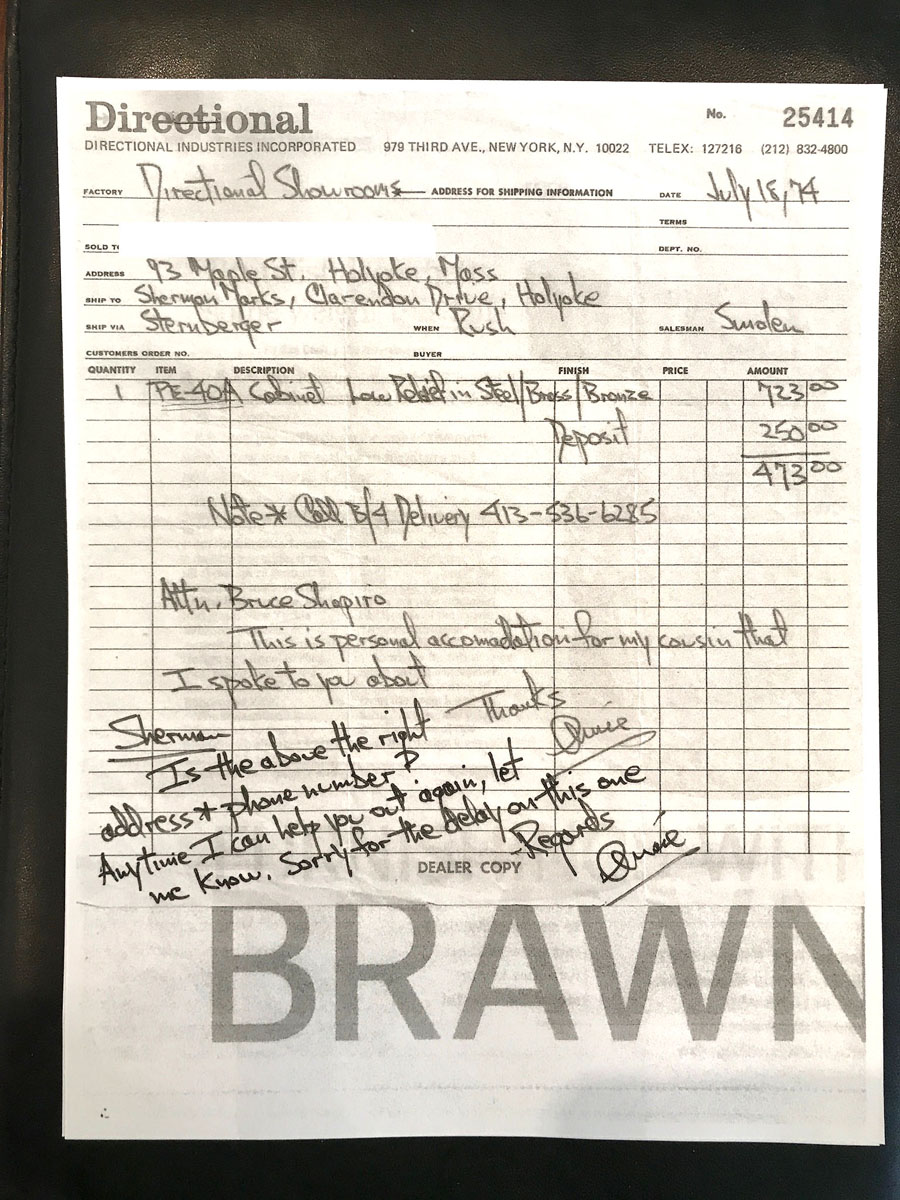 Directional
No. 25414
DIRECTIONAL INDUSTRIES INCORPORATED 979 THIRD AVE., NEW YORK, N.Y. 10022 TELEX: 127216 (212) 832-4800
FACTORY Directional Showrooms ADDRESS FOR SHIPPING INFORMATION DATE July 18, 74
TERMS
SOLD TO DEPT. NO.
ADDRESS 93 Maple St. Holyoke, Mass
SHIP TO Sherman Marks, Clarendon Drive, Holyoke
SHIP VIA Sternberger WHEN Rush SALESMAN Smolen
CUSTOMERS ORDER NO. BUYER
QUANTITY ITEM DESCRIPTION FINISH PRICE AMOUNT
1 PE-40A Cabinet Low Relief in Steel/Brass/Bronze 723 00
Deposit 250 00
473 00
Note* Call B/4 Delivery 413-536-6285
Attn. Bruce Shapiro
This is personal accomadation for my cousin that
I spoke to you about
Thanks
Sherman
Is the above the right
address + phone number?
Anytime I can help you out again, let
me know. Sorry for the delay on this one
Regards
DEALER COPY
BRAWN